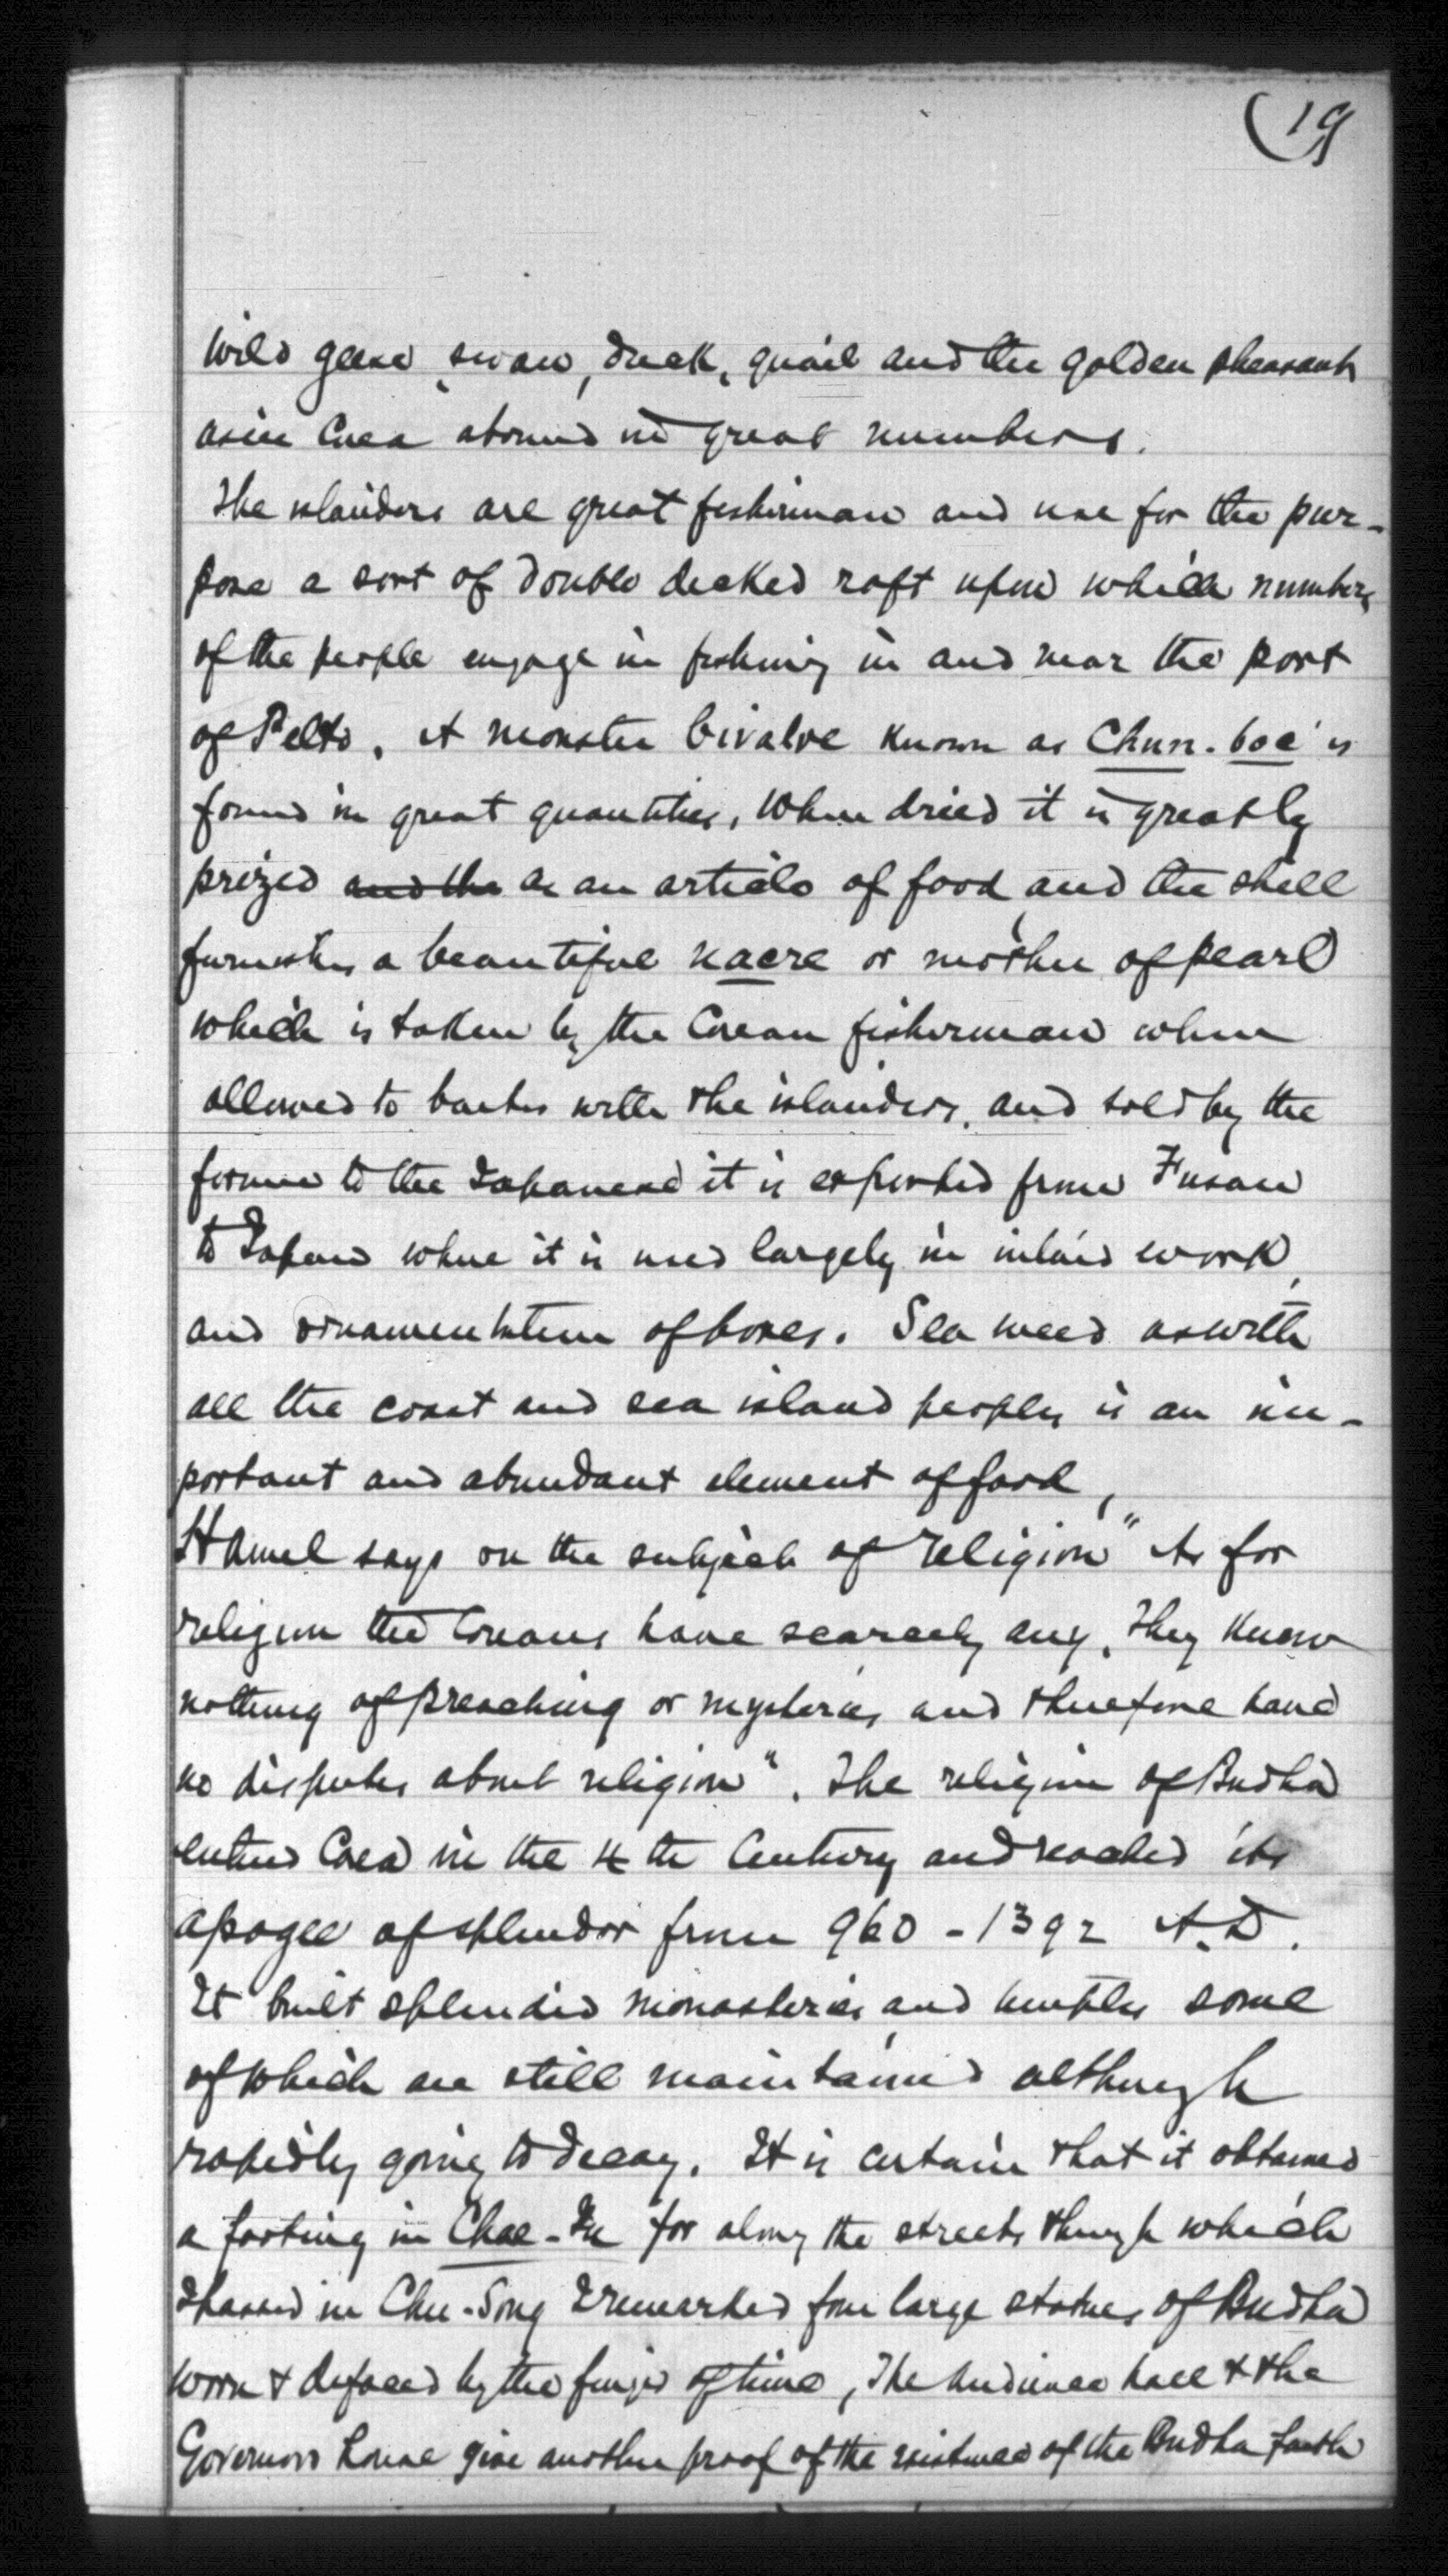 (19
Wild geese, swan, duck, quail and the golden pheasant
as in Corea abound in great numbers.
The islanders are great fisherman and use for the pur-
pose a sort of double decked raft upon which numbers
of the people engage in fishing in and near the port
of Pelto. A monster bivalve known as Chun-boc is
found in great quantities, When dried it is greatly
prized and the as an article of food and the shell
furnishes a beautiful nacre or mother of pearl
which is taken by the Corean fisherman when
allowed to barter with the islanders, and sold by the
former to the Japanese it is exported from Fusan
to Japan where it is used largely in inlaid work,
and ornamentation of boxes. Sea weed as with
all the coast and sea island peoples is an im-
portant and abundant element of food,
Hamel says on the subject of religion "As for
religion the Coreans have scarcely any. They know
nothing of preaching or mysteries, and therefore have
no disputes about religion". The religion of Budha
entered Corea in the 4th Century and reached its
apogee of splendor from 960 - 1392 A.D.
It built splendid monasteries and temples some
of which are still maintained although
rapidly going to decay. It is certain that it obtained
a footing in Chae-Ju for along the streets through which
I passed in Chu-Song I remarked four large statues of Budha
worn & defaced by the finger of time, The Audience hall & the
Governors house give another proof of the existence of the Budha faith